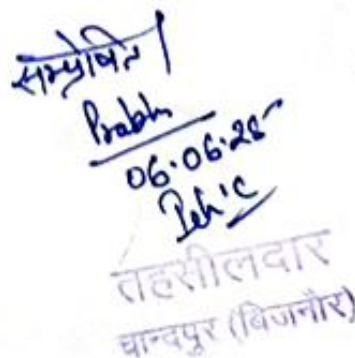 सम्प्रेषित।
Prabh
06.06.25
तहसीलदार
चान्दपुर (बिजनौर)